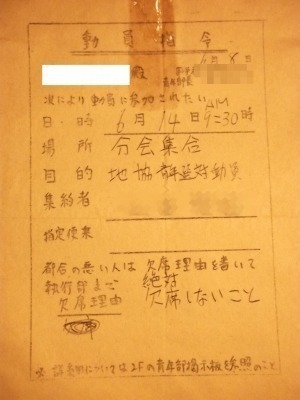 動員指令
6月8日
殿
次により動員に参加されたい
AM
日・時 6月14日9=30時
場所 分会集合
目的 地協 動員
集約者
指定便乗
都合の悪い人は欠席理由を書いて
執行部まで 絶対
欠席理由 欠席しないこと
※ については2Fの青年部掲示板を参照のこと